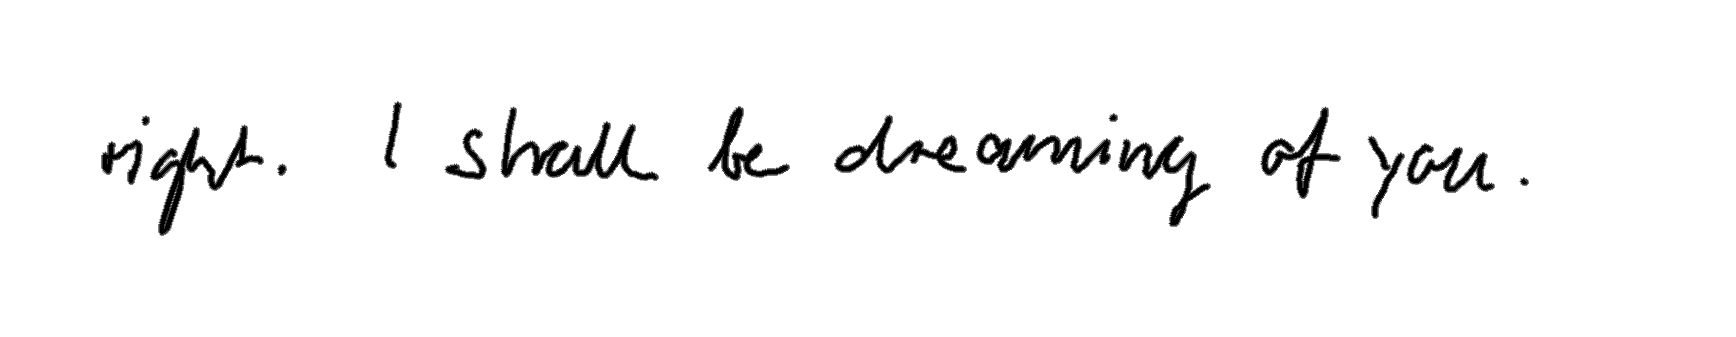 right. I shall be dreaming of you.